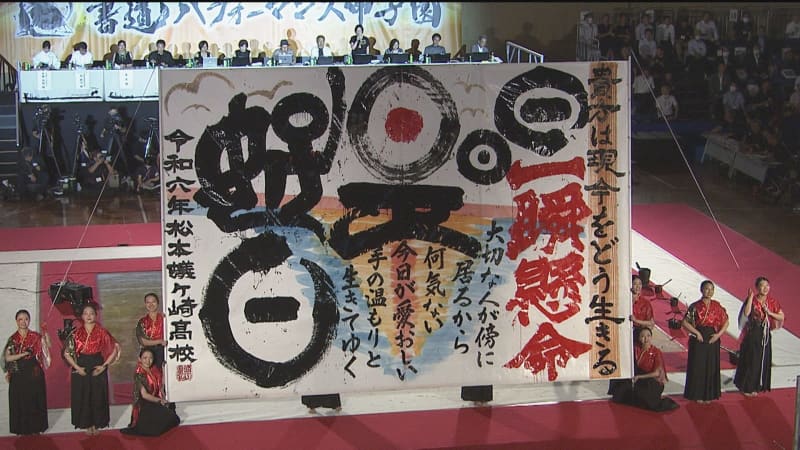 書道パフォーマンス甲子園
貴方は現今をどう生きる
一瞬懸命
大切な人が傍に
居るから
何気ない
今日が愛おしい
手の温もりと
生きてゆく
令和六年松本蟻ヶ崎高校